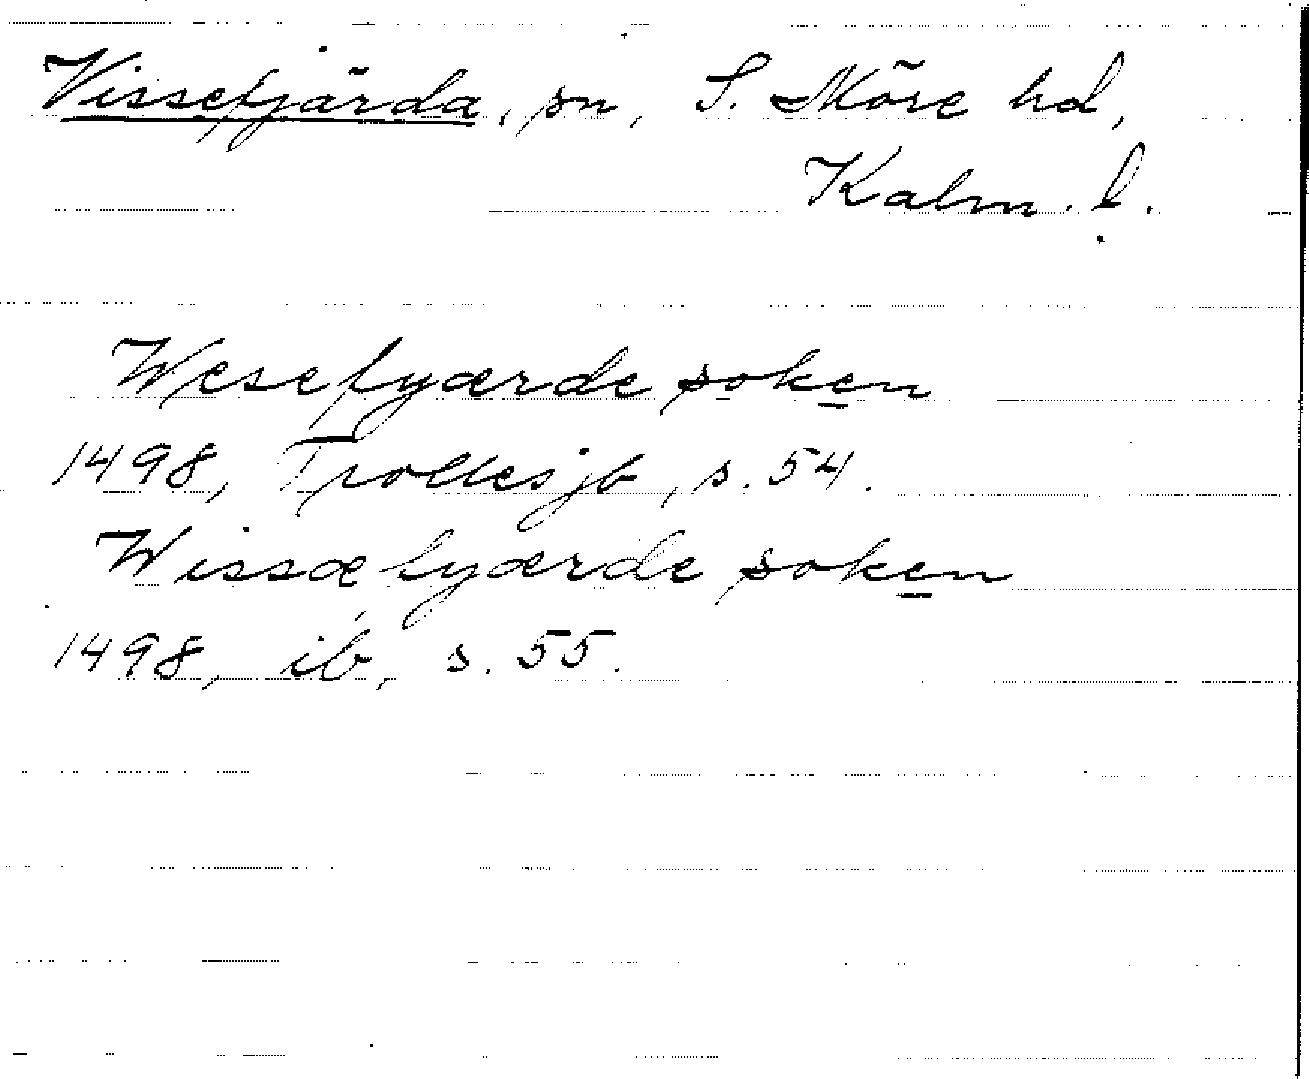 Vissefjärda, sn, S. Möre hd,
Kalm. l.
Wesefyærde soken
1498, Trollesjb, s. 54.
Wissæ fyærde soken
1498, ib, s. 55.